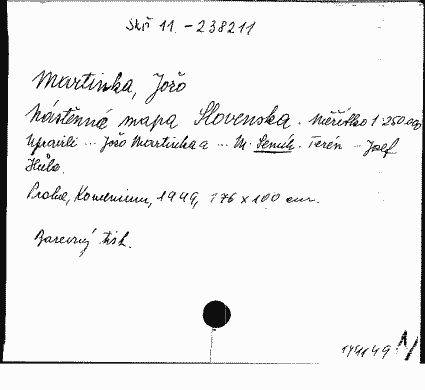 Skř 11. - 238211
Martinka, Jožo
Nástěnná mapa Slovenska. Měřítko 1:250.000
Upravili ... Jožo Martinka a ... M. Semík. Terén ... Josef
Hůla.
Praha, Komenium, 1949, 176 x 100 cm.
Barevný tisk.